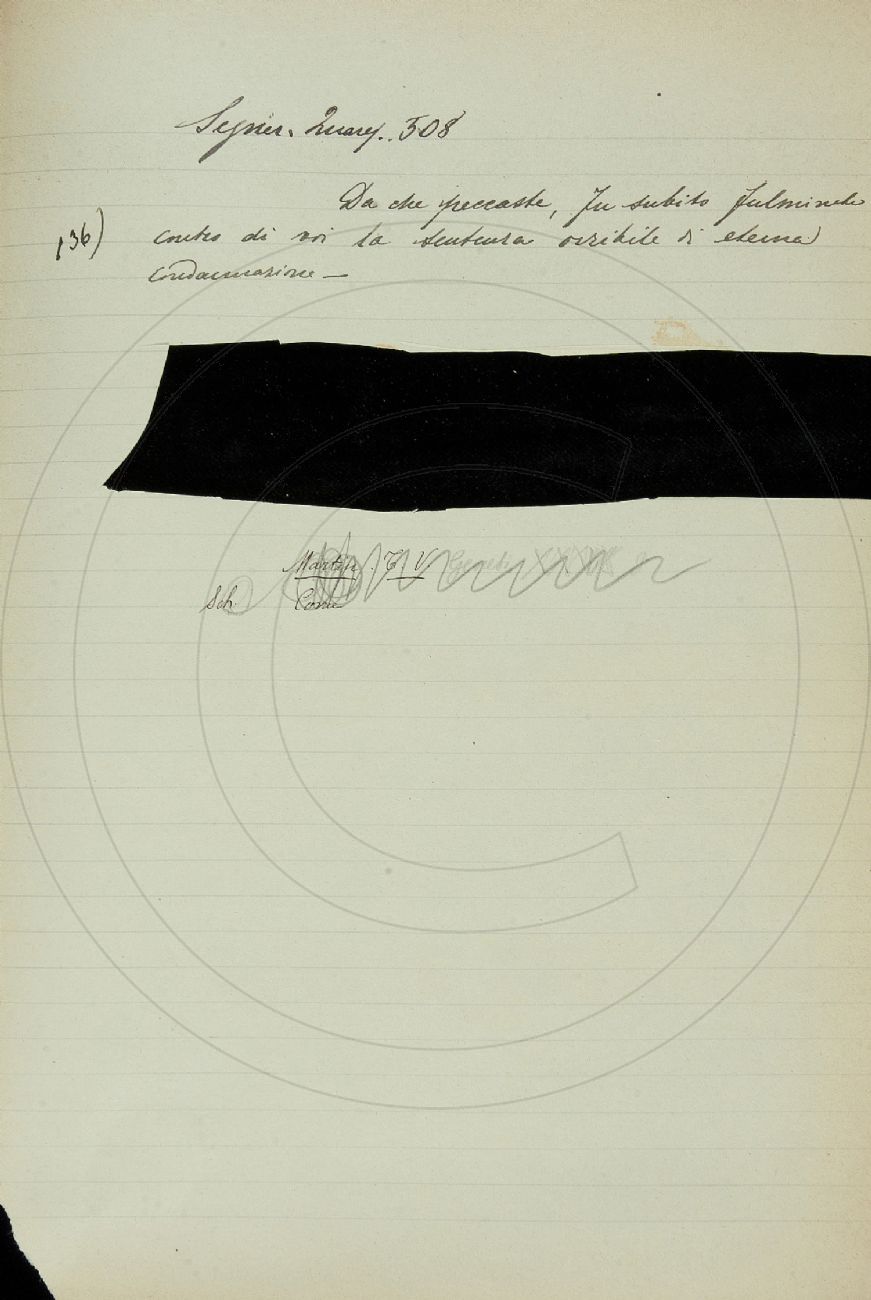 Segner. Quar. 508
Da che peccaste, fu subito fulminata
136) contro di voi la sentenza orribile di eterna
condannazione —
Martin. T. V.
Sch. Corne